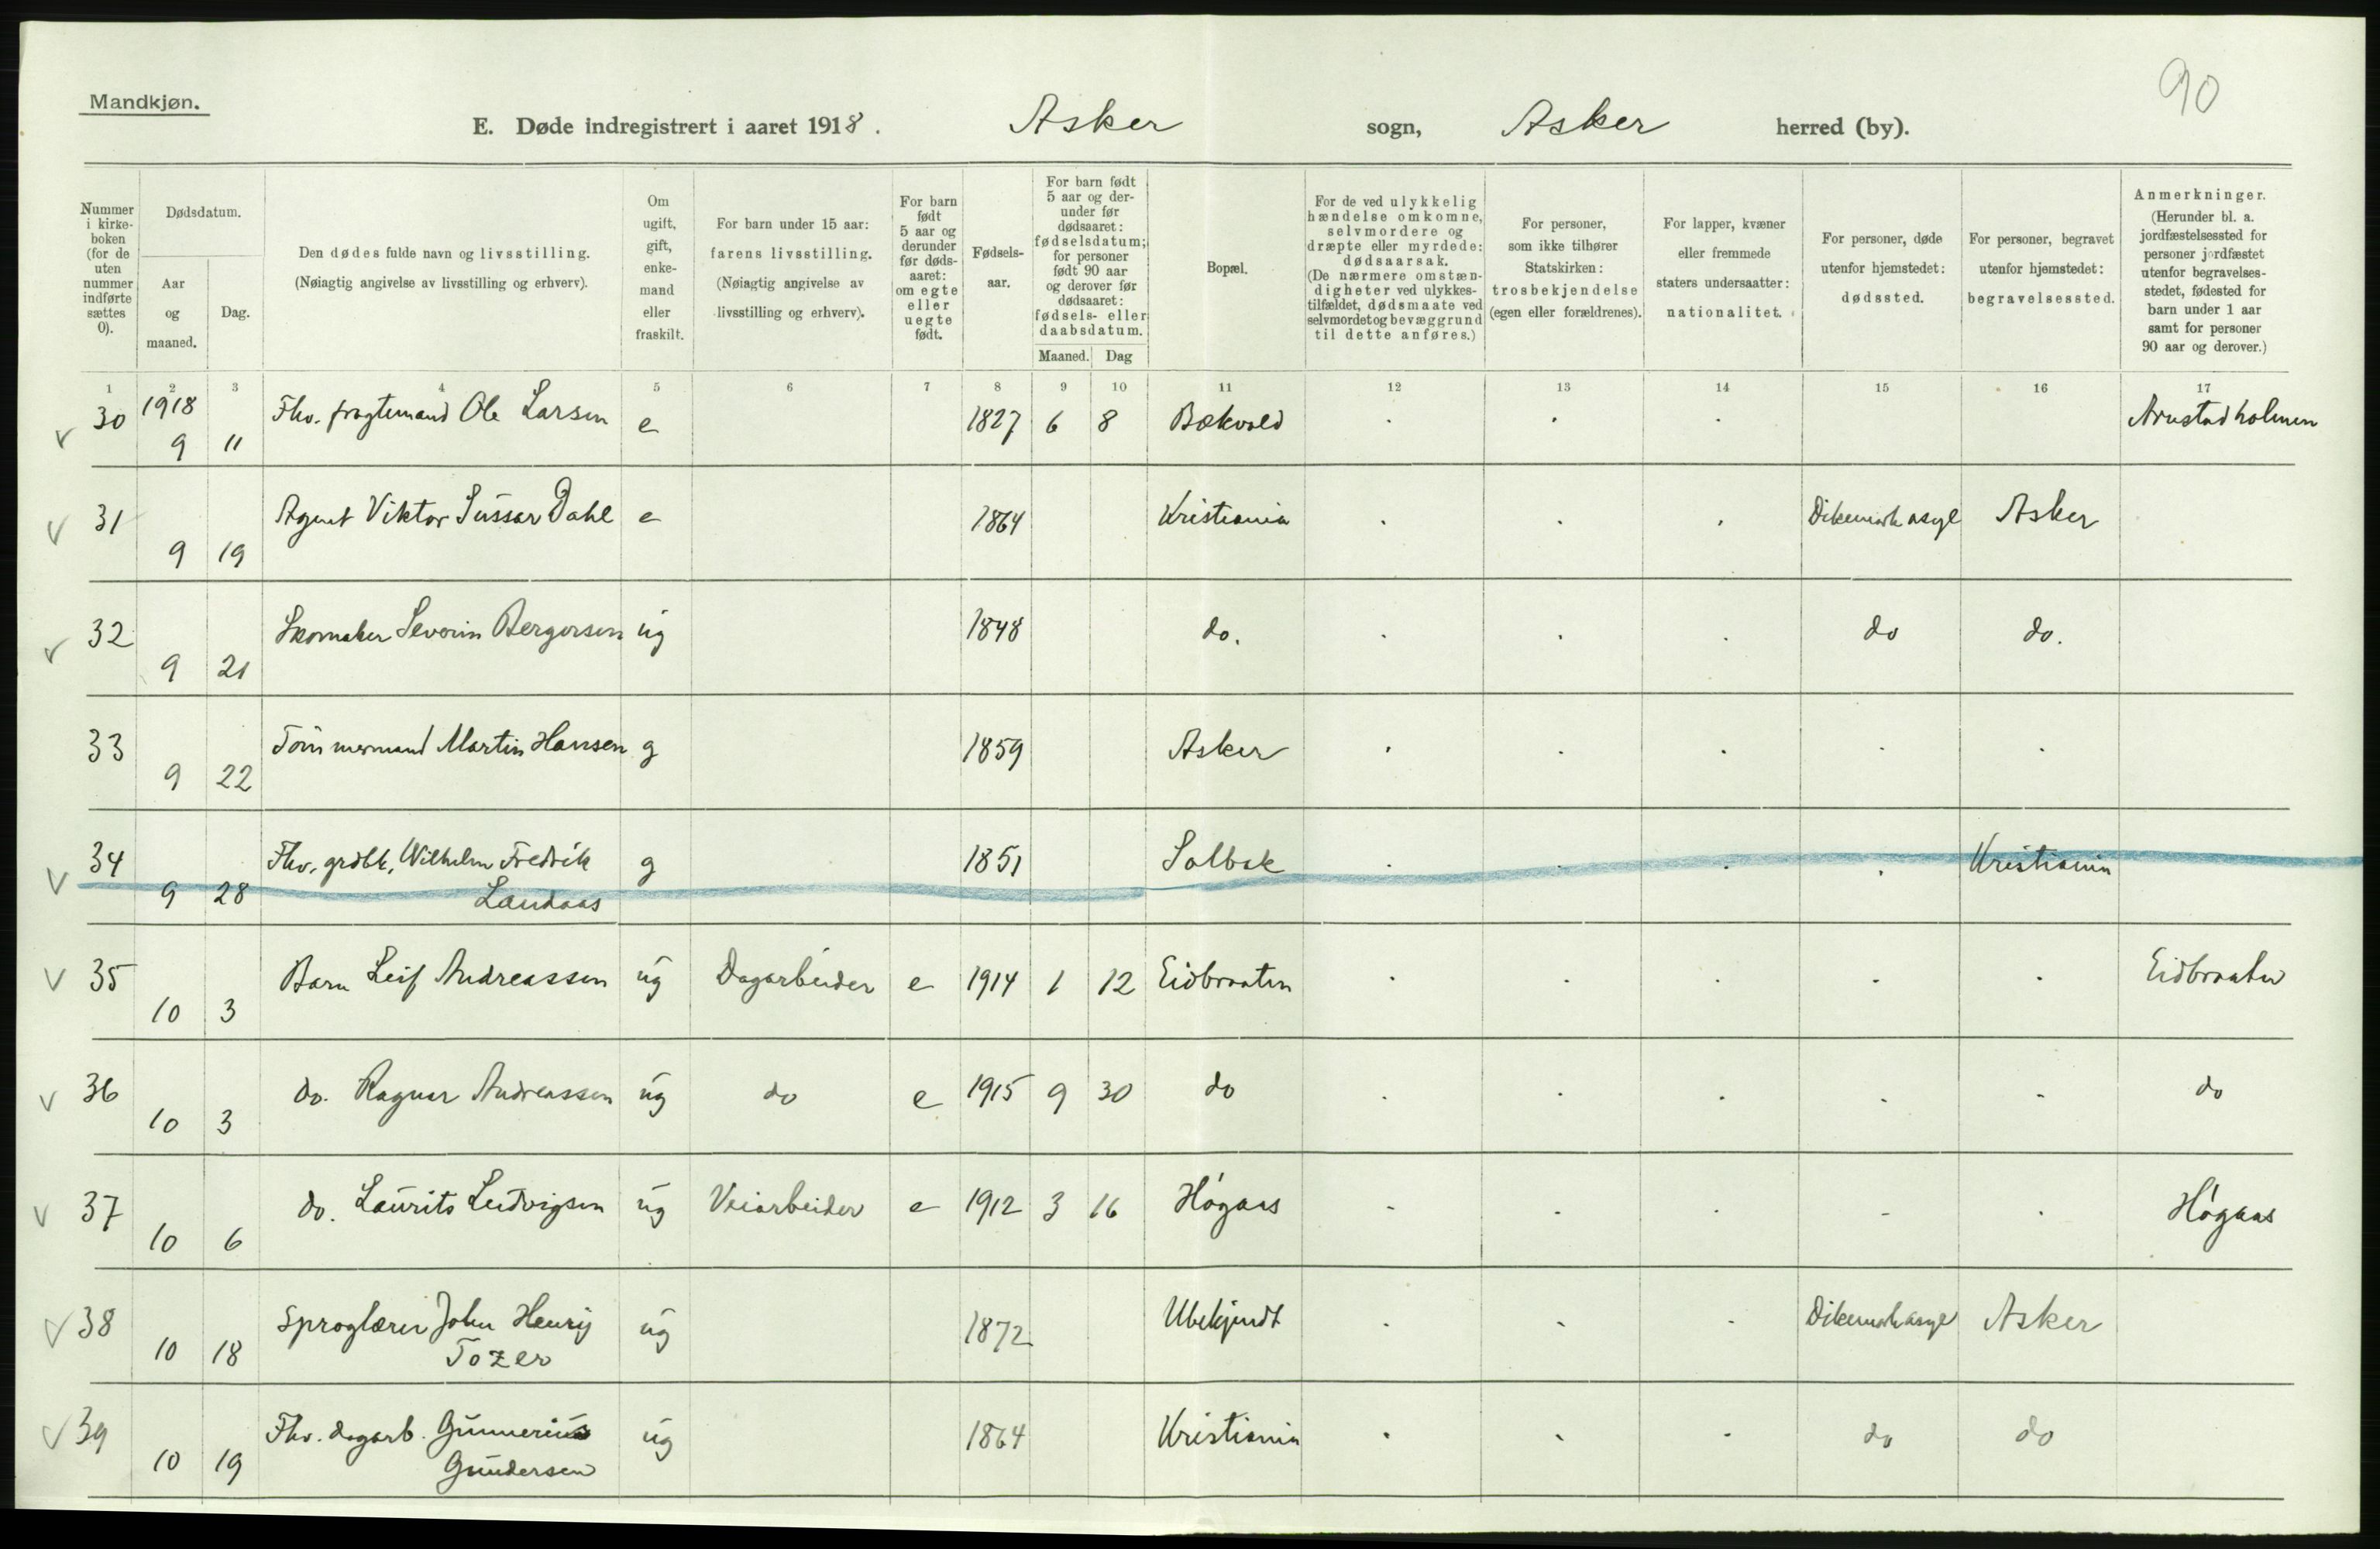 90
Mandkjøn.
E. Døde indregistrert i aaret 1918. Asker sogn, Asker herred (by).
Nummer i kirke-boken (for de uten nummer indførte sættes 0).
Dødsdatum.
Aar og maaned.
Dag.
Den dødes fulde navn og livsstilling.
(Nøiagtig angivelse av livsstilling og erhverv).
Om ugift, gift, enke-mand eller fraskilt.
For barn under 15 aar: farens livsstilling. (Nøiagtig angivelse av livsstilling og erhverv).
For barn født 5 aar og derunder før døds-aaret: om egte eller uegte født.
Fødsels-aar.
For barn født 5 aar og der-under før dødsaaret: fødselsdatum; for personer født 90 aar og derover før dødsaaret: fødsels- eller daabsdatum.
Maaned. Dag
Bopæl.
For de ved ulykkelig hændelse omkomne, selvmordere og dræpte eller myrdede: dødsaarsak. (De nærmere omstæn-digheter ved ulykkes-tilfældet, dødsmaate ved selvmordet og bevæggrund til dette anføres.)
For personer, som ikke tilhører Statskirken: trosbekjendelse (egen eller forældrenes).
For lapper, kvæner eller fremmede staters undersaatter: nationalitet.
For personer, døde utenfor hjemstedet: dødssted.
For personer, begravet utenfor hjemstedet: begravelsessted.
Anmerkninger. (Herunder bl. a. jordfæstelsessted for personer jordfæstet utenfor begravelses-stedet, fødested for barn under 1 aar samt for personer 90 aar og derover.)
1 2 3 4 5 6 7 8 9 10 11 12 13 14 15 16 17
30 1918 9 11 Fhv. fragtemand Ole Larsen e 1827 6 8 Bækvold Arnstadholmen
31 9 19 Agent Viktor Dahl e 1864 Kristiania Dikemark asyl Asker
32 9 21 Skomaker Severin Bergersen ug 1848 do. do do.
33 9 22 Tømmermand Martin Hansen g 1859 Asker
34 9 28 Fhv. grdbk. Wilhelm Fredrik g 1851 Solbak Kristiania
Landaas
35 10 3 Barn Leif Andreassen ug Dagarbeider e 1914 1 12 Eidbraaten Eidbraaten
36 10 3 do. Ragnar Andreassen ug do e 1915 9 30 do do
37 10 6 do. Laurits Ludvigsen ug Veiarbeider e 1912 3 16 Høgaas Høgaas
38 10 18 Sproglærer John Henry ug 1872 Ubekjendt Dikemark asyl Asker
Tozer
39 10 19 Fhv. dagarb. Gunnerius ug 1864 Kristiania do do
Gundersen